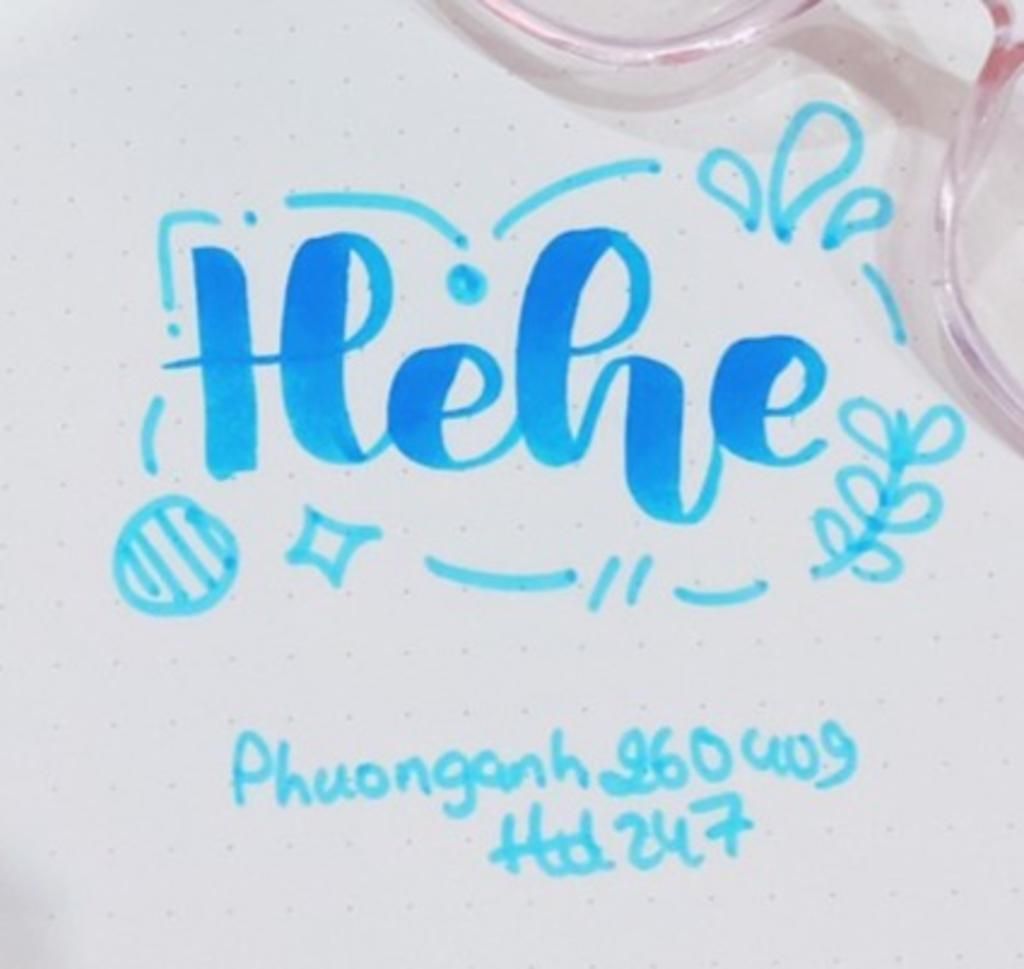 Hehe
Phuonganh260409
Hd247